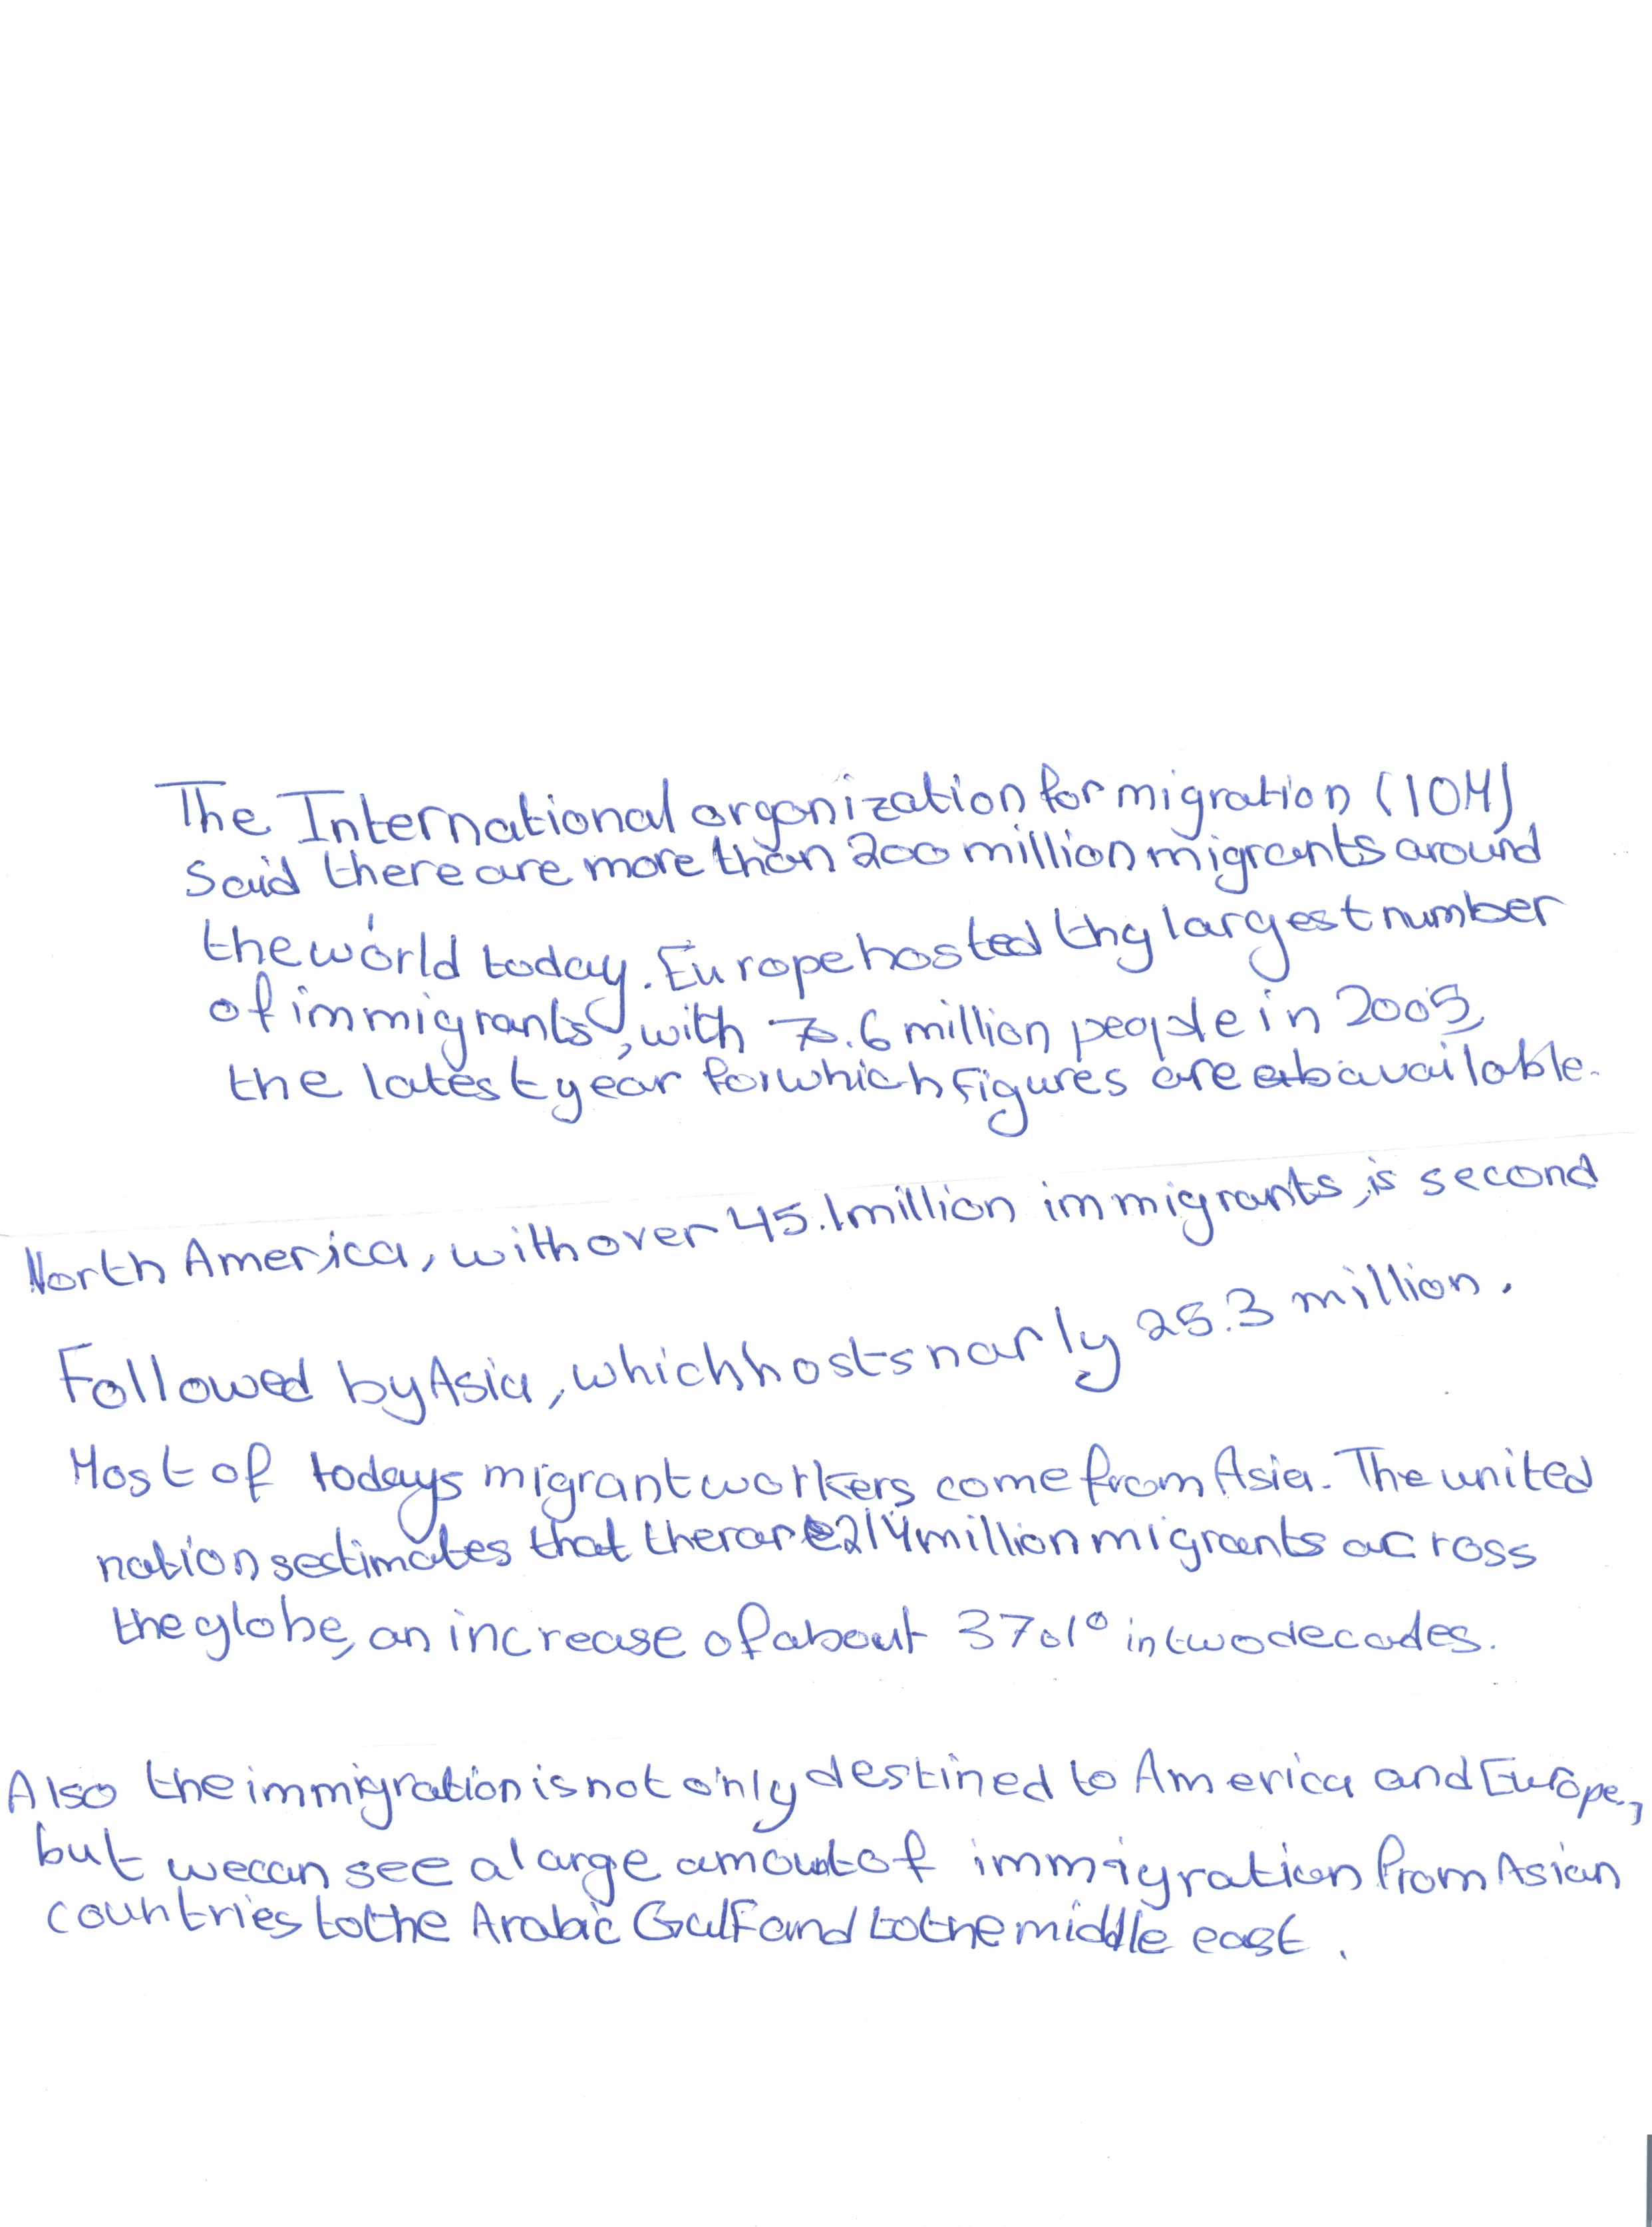 The International organization for migration (IOM)
said there are more than 200 million migrants around
the world today. Europe hosted thy largest number
of immigrants, with 70.6 million people in 2005,
the latest year for which figures are available.
North America, with over 45.1 million immigrants, is second
Followed by Asia, which hosts narly 25.3 million.
Most of todays migrant workers come from Asia. The united
nations estimates that ther are 214 million migrants across
the globe, an increase of about 37% in two decades.
Also the immigration is not only destined to America and Europe,
but we can see a large amount of immigration from Asian
countries to the Arabic Gulf and to the middle east.